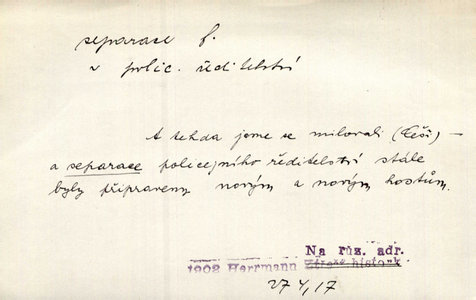 separace f.
v polic. ředitelství
A tehda jsme se milovali (Češi) —
a separace policejního ředitelství stále
byly připraveny novým a novým hostům.
Na růz. adr.
1902 Herrmann
27 4, 17